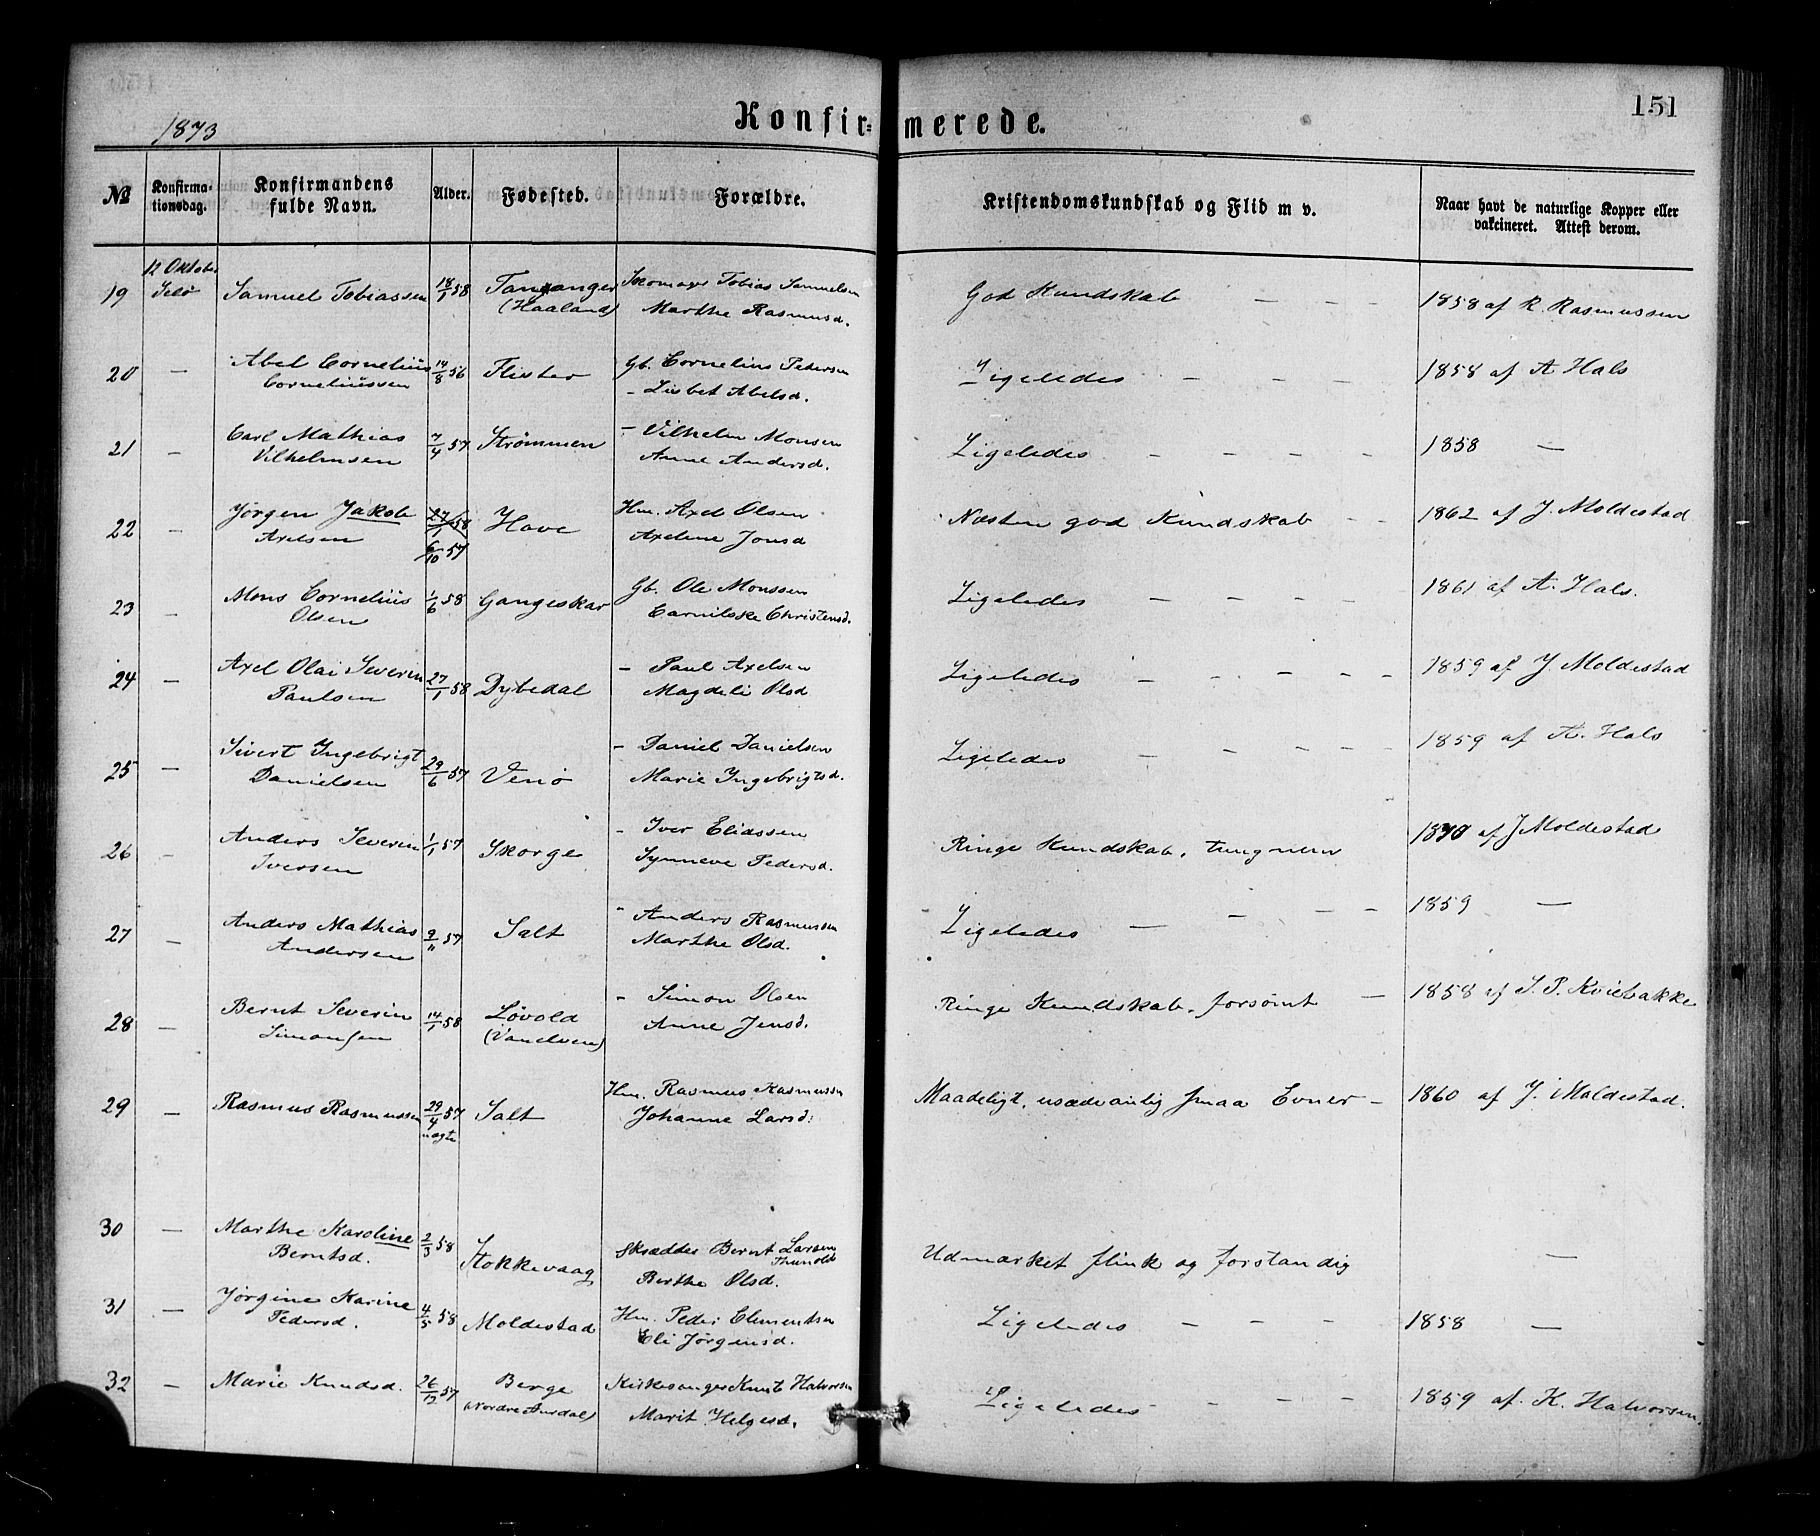 151
1873
Konfir-merede.
No
Konfirma-
tionsdag.
Konfirmandens
fulde Navn.
Alder.
Fødested.
Forældre.
Kristendomskundskab og Flid m v.
Naar havt de naturlige Kopper eller
vakcineret. Attest derom.
12 Oktob.
19 Selø Samuel Tobiassen 18/1 58 Tananger Skomager Tobias Samuelsen God Kundskab — — — 1858 af R. Rasmussen
(Haaland) Marthe Rasmusd.
20 — Abel Cornelius 14/8 56 Flister Gb. Cornelius Petersen Ligeledes — — — 1858 af A Hals
Corneliussen - Lisbet Abelsd.
21 — Carl Mathias 7/4 57 Strømmen - Vilhelm Monsen Ligeledes — — — — 1858 —
Vilhelmsen Anne Andersd.
22 — Jørgen Jakob 27/1 58 Have Hm. Axel Olsen Næsten god Kundskab — — 1862 af J. Moldestad
Axelsen 6/10 57 Axeline Jonsd
23 — Mons Cornelius 1/6 58 Gangeskar Gb. Ole Monssen Ligeledes — — — — 1861 af A. Hals.
Olsen Christensd.
24 — Axel Olai Severin 27/1 58 Dybedal - Paul Axelsen Ligeledes — — — — — 1859 af J. Moldestad
Paulsen Magdeli Olsd
25 — Sivert Ingebrigt 29/6 57 Venø - Daniel Danielsen Ligeledes — — — — 1859 af A. Hals
Danielsen Marie Ingebrigtsd.
26 — Anders Severin 1/1 57 Skorge - Iver Eliassen Ringe Kundskab, tungnem 1870 af J Moldestad
Iversen Synneve Pedersd.
27 — Anders Mathias 9/11 57 Salt - Anders Rasmussen Ligeledes — — — — 1859 —
Andersen Marthe Olsd.
28 — Bernt Severin 14/1 58 Løvold - Simon Olsen Ringe Kundskab, forsømt — 1858 af S. P. Kviebakke
Simonsen (Vanelven) Anne Jensd.
29 — Rasmus Rasmussen 29/4 57 Salt Hm. Rasmus Rasmussen Maadeligt, usædvanlig smaa Evner — 1860 af J. Moldestad.
Johanne Larsd.
30 — Marthe Karoline 2/3 58 Stokkevaag Skrædder Bernt Larsen Udmærket flink og forstandig —
Berntsd. Berthe Olsd.
31 — Jørgine Karine 4/5 58 Moldestad Hm. Peder Clementsen Ligeledes — — — 1858 —
Pedersd. Eli Jørgensd.
32 — Marie Knudsd. 26/12 57 Berge Kirkesanger Knut Halvorsen Ligeledes — — — 1859 af. K. Halvorsen.
(Nordre Aurdal) Marit Helgesd.